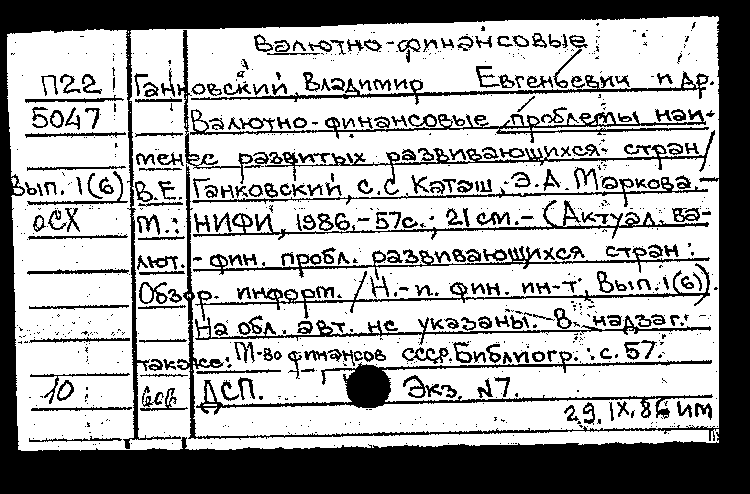 Валютно-финансовые
П22 Ганковский, Владимир Евгеньевич и др.
5047 Валютно-финансовые проблемы наи-
менее развитых развивающихся стран /
Вып. 1(6) В.Е. Ганковский, С.С. Каташ, Э.А. Маркова. –
ОСХ М.: НИФИ, 1986. – 57с.; 21 см. – (Актуал. ва-
лют.-фин. пробл. развивающихся стран:
Обзор. информ. / Н.-и. фин. ин-т; Вып. 1(6)).
На обл. авт. не указаны. В надзаг.:
также: М-во финансов СССР. Библиогр.: с. 57.
10 ДСП. Экз. №7.
29.IX.86 им